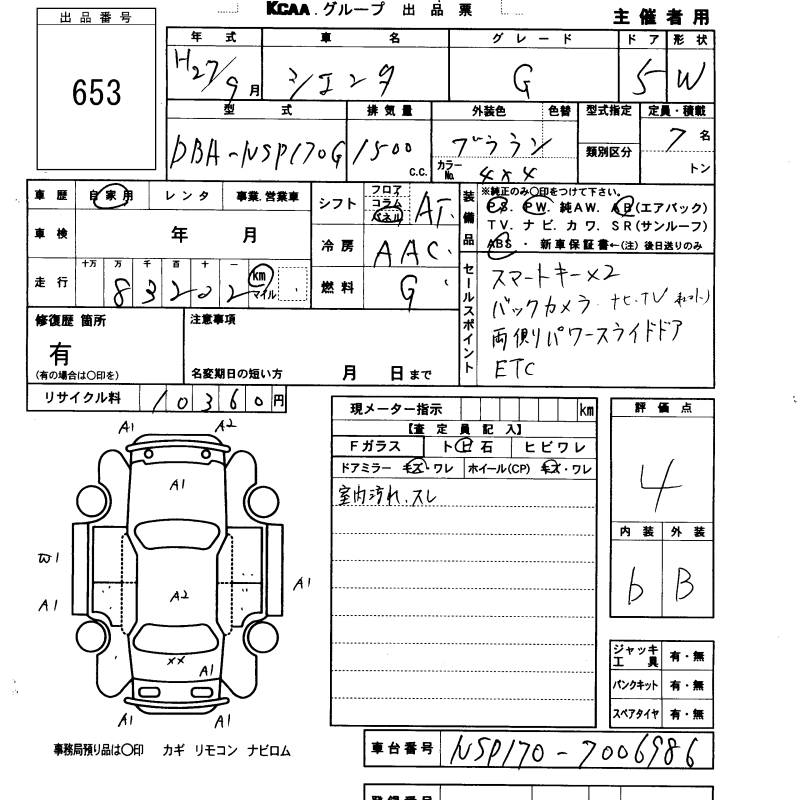 KCAA.グループ 出品票
主催者用
出品番号
653
年式 車名 グレード ドア 形状
H27/9月 シエンタ G 5 W
型式 排気量 外装色 色替 型式指定 定員・積載
DBA-NSP170G 1500 c.c. ブラウン 7名
カラーNo. 4X4 類別区分 トン
車歴 自家用 レンタ 事業.営業車
車検 年 月
走行 十万 万 千 百 十 一
83202 km マイル
シフト フロア コラム パネル AT.
冷房 AAC.
燃料 G
装備品 ※純正のみ〇印をつけて下さい。
PS. PW. 純AW. AB(エアバック)
TV. ナビ. カワ. SR(サンルーフ)
ABS ・ 新車保証書←(注)後日送りのみ
セールスポイント
スマートキー×2
バックカメラ・ナビ・TV
両側パワースライドドア
ETC
修復歴 箇所
有
(有の場合は〇印を)
注意事項
名変期日の短い方 月 日まで
リサイクル料 10360円
現メーター指示 km
【査定員記入】
Fガラス ト ヒ 石 ヒビワレ
ドアミラー キズ・ワレ ホイール(CP) キズ・ワレ
室内汚れ、スレ
評価点
4
内装 外装
b B
ジャッキ工具 有・無
パンクキット 有・無
スペアタイヤ 有・無
A1 A2
A1
W1
A2
A1 A1
XX
A1
A1 A1
事務局預り品は〇印 カギ リモコン ナビロム
車台番号 NSP170-7006986
登録番号